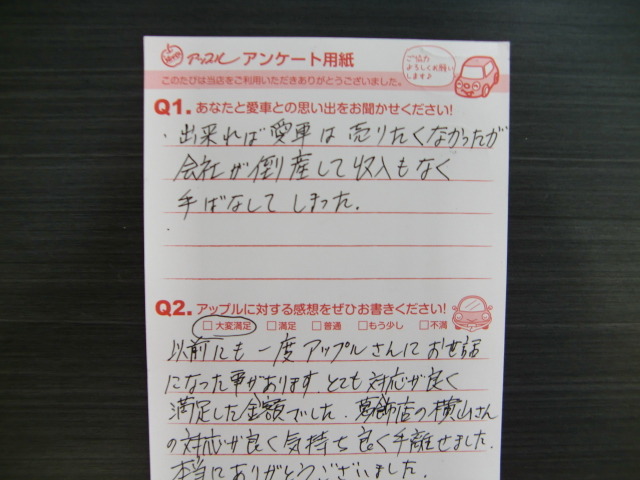 アップル アンケート用紙
ご協力
よろしくお願い
します♪
このたびは当店をご利用いただきありがとうございました。
Q1. あなたと愛車との思い出をお聞かせください!
・出来れば愛車は売りたくなかったが
会社が倒産して収入もなく
手ばなしてしまった.
Q2. アップルに対する感想をぜひお書きください!
□大変満足 □満足 □普通 □もう少し □不満
以前にも一度アップルさんにお世話
になった事があります.とても対応が良く
満足した金額でした.葛飾店の横山さん
の対応が良く気持ち良く手離せました.
本当にありがとうございました.